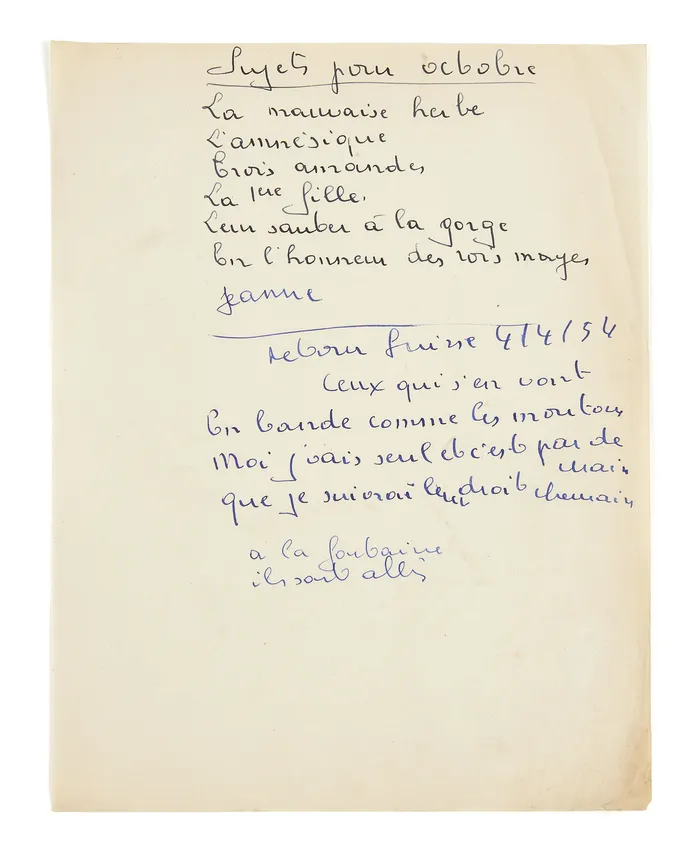 Sujets pour octobre
La mauvaise herbe
L'amnésique
Trois amandes
La 1ere fille.
Leur sauter à la gorge
En l'honneur des rois mages
Jeanne
retour Suisse 4/4/54
Ceux qui s'en vont
En bande comme les moutons
Moi j'vais seul et c'est pas demain
que je suivrai leur droit chemain
a la fontaine
ils sont allés